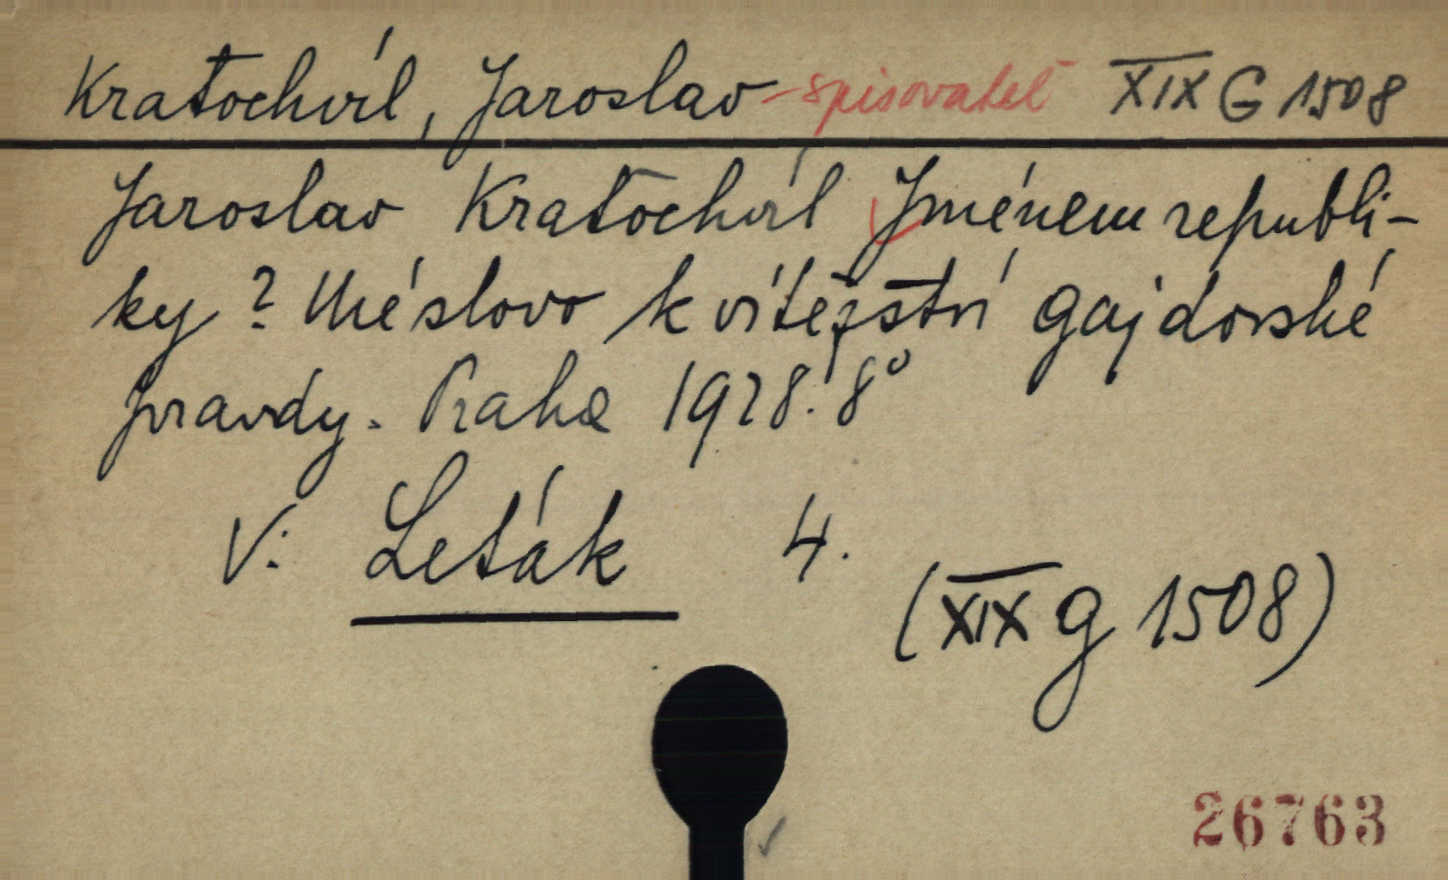 Kratochvíl, Jaroslav - spisovatel XIX G 1508
Jaroslav Kratochvíl Jménem republi-
ky? Mé slovo k vítězství gajdovské
pravdy. Praha 1928. 8°
V: Leták 4.
(XIX G 1508)
26763